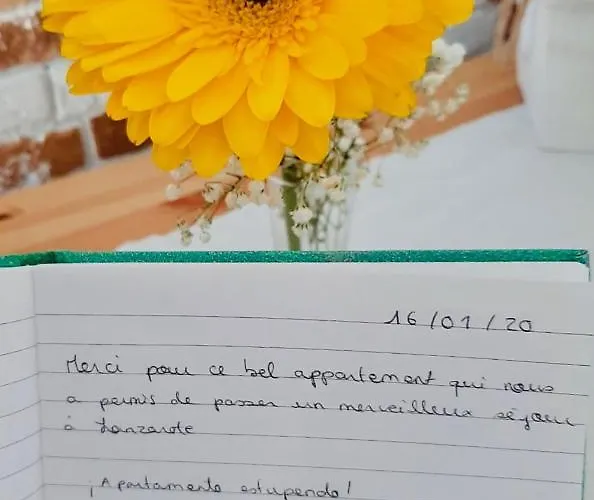 16/01/20
Merci pour ce bel appartement qui nous
a permis de passer un merveilleux séjour
à Lanzarote
¡Apartamento estupendo!